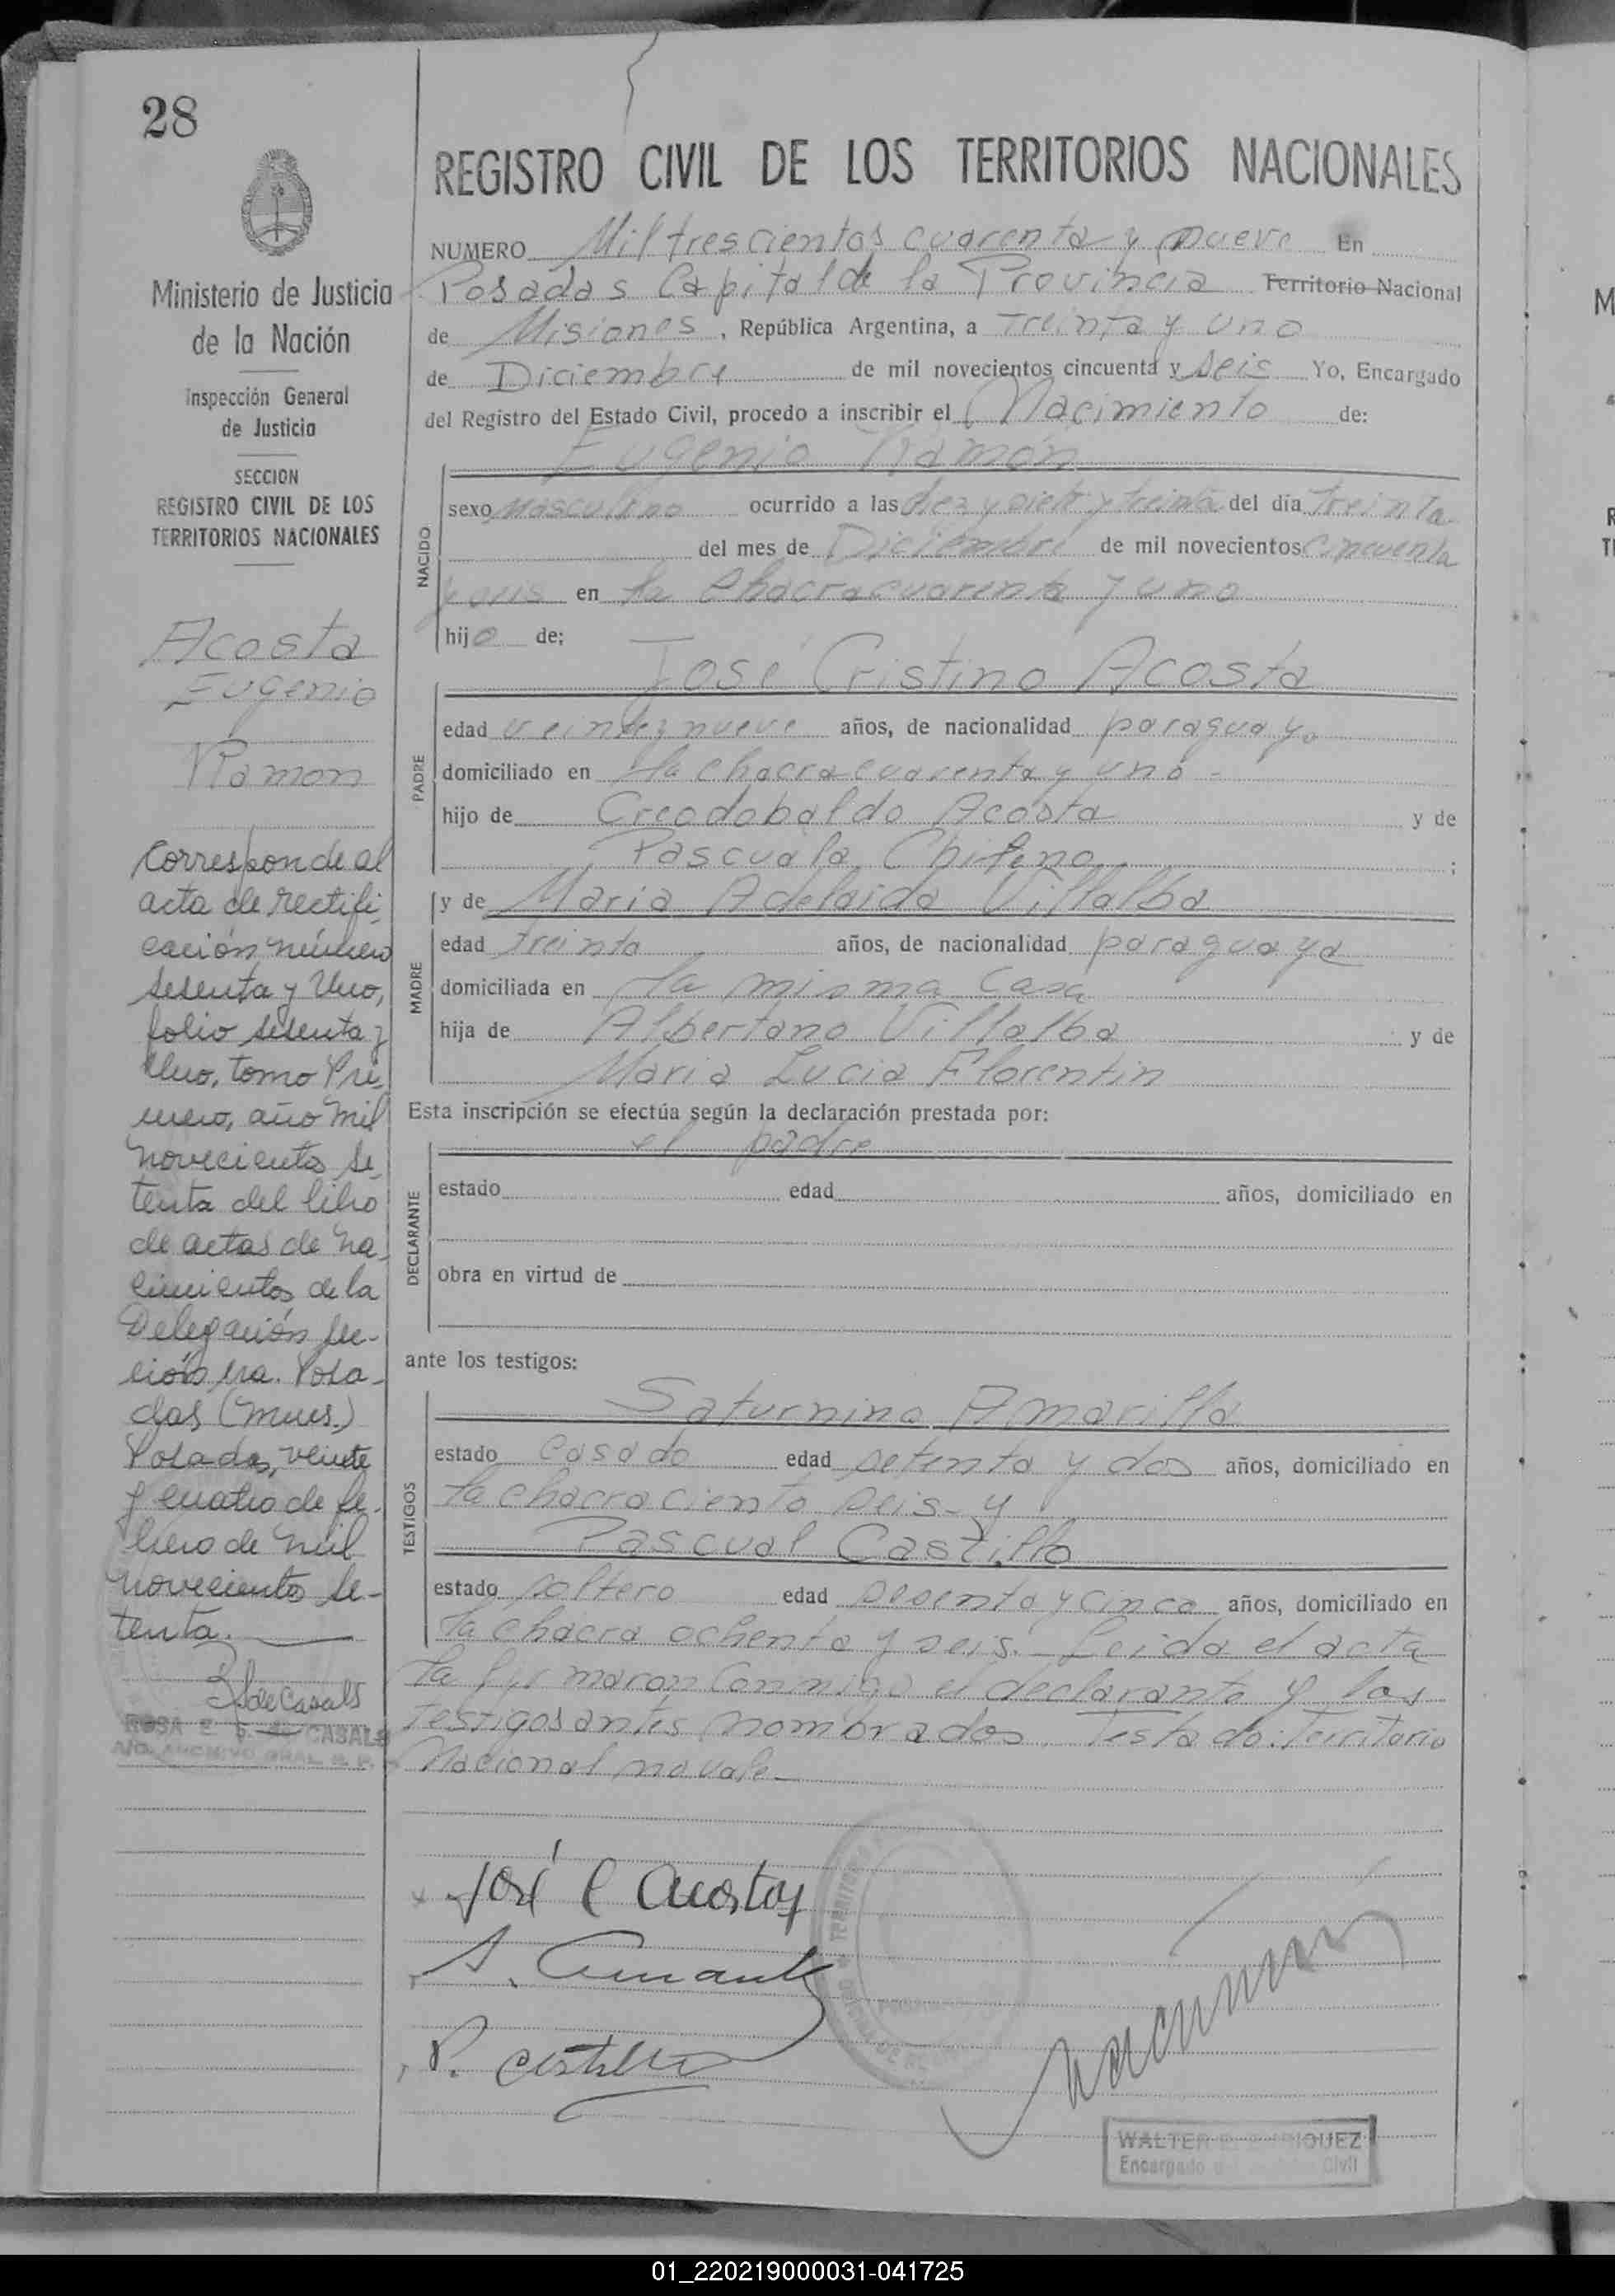 28
Ministerio de Justicia
de la Nación
Inspección General
de Justicia
SECCION
REGISTRO CIVIL DE LOS
TERRITORIOS NACIONALES
Acosta
Eugenio
Ramon
Corresponde al
acta de rectifi-
cación número
sesenta y Uno,
folio sesenta y
Uno, tomo Pri-
mero, año mil
novecientos se-
tenta del libro
de actas de na-
cimientos de la
Delegación Sec-
ción 1ra. Posa-
das (Mnes.)
Posadas, veinte
y cuatro de fe-
brero de mil
novecientos se-
tenta.
de Casals
ROSA E. CASALS
ARCHIVO GRAL.
REGISTRO CIVIL DE LOS TERRITORIOS NACIONALES
NUMERO Mil trescientos cuarenta y nueve En
Posadas Capital de la Provincia Territorio Nacional
de Misiones, República Argentina, a treinta y uno
de Diciembre de mil novecientos cincuenta y seis Yo, Encargado
del Registro del Estado Civil, procedo a inscribir el Nacimiento de:
Eugenio Ramón
NACIDO
sexo masculino ocurrido a las diez y siete y treinta del día treinta
del mes de Diciembre de mil novecientos cincuenta
y seis en la chacra cuarenta y uno
hijo de:
José Cristino Acosta
PADRE
edad veinte y nueve años, de nacionalidad paraguayo
domiciliado en la chacra cuarenta y uno -
hijo de Creodobaldo Acosta y de
Pascuala Chileno ;
y de Maria Adelaida Villalba
MADRE
edad treinta años, de nacionalidad paraguaya
domiciliada en la misma casa
hija de Albertano Villalba y de
Maria Lucia Florentin
Esta inscripción se efectúa según la declaración prestada por:
el padre
DECLARANTE
estado edad años, domiciliado en
obra en virtud de
ante los testigos:
Saturnino Amarilla
TESTIGOS
estado casado edad setenta y dos años, domiciliado en
la chacra ciento seis - y
Pascual Castillo
estado soltero edad sesenta y cinco años, domiciliado en
la chacra ochenta y seis. Leida el acta
la firmaron conmigo el declarante y los
testigos antes nombrados. Testado: Territorio
Nacional no vale.
José C Acosta
P. Castillo
WALTER
Encargado Civil
01_220219000031-041725